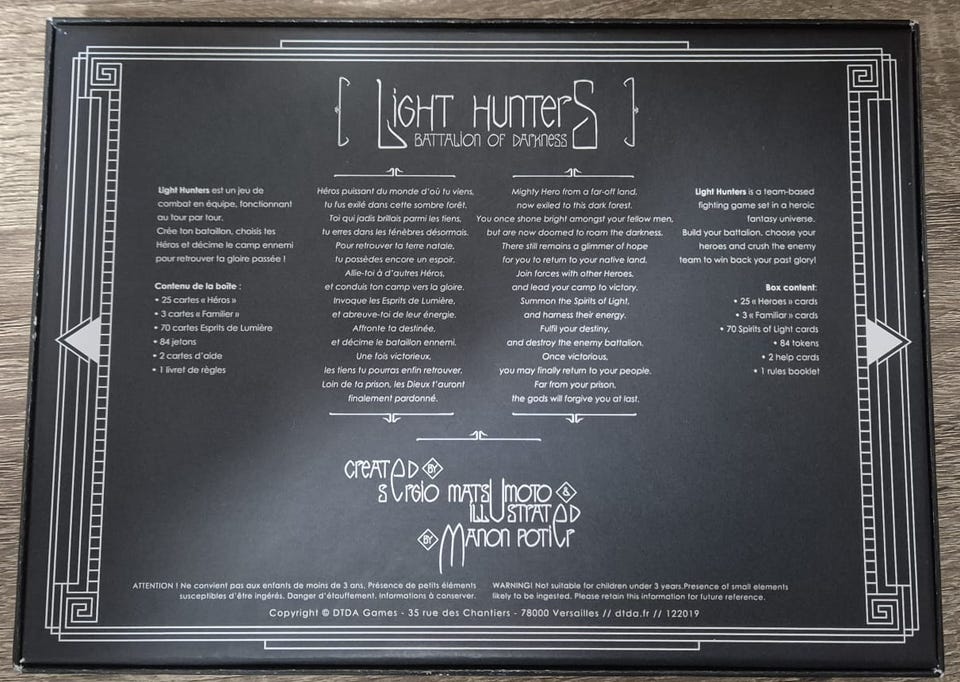 Light Hunters
Battalion of Darkness
Light Hunters est un jeu de
combat en équipe, fonctionnant
au tour par tour.
Crée ton bataillon, choisis tes
Héros et décime le camp ennemi
pour retrouver ta gloire passée !
Contenu de la boîte :
• 25 cartes « Héros »
• 3 cartes « Familier »
• 70 cartes Esprits de Lumière
• 84 jetons
• 2 cartes d'aide
• 1 livret de règles
Héros puissant du monde d'où tu viens,
tu fus exilé dans cette sombre forêt.
Toi qui jadis brillais parmi les tiens,
tu erres dans les ténèbres désormais.
Pour retrouver ta terre natale,
tu possèdes encore un espoir.
Allie-toi à d'autres Héros,
et conduis ton camp vers la gloire.
Invoque les Esprits de Lumière,
et abreuve-toi de leur énergie.
Affronte ta destinée,
et décime le bataillon ennemi.
Une fois victorieux,
les tiens tu pourras enfin retrouver.
Loin de ta prison, les Dieux t'auront
finalement pardonné.
Mighty Hero from a far-off land,
now exiled to this dark forest.
You once shone bright amongst your fellow men,
but are now doomed to roam the darkness.
There still remains a glimmer of hope
for you to return to your native land.
Join forces with other Heroes,
and lead your camp to victory.
Summon the Spirits of Light,
and harness their energy.
Fulfil your destiny,
and destroy the enemy battalion.
Once victorious,
you may finally return to your people.
Far from your prison,
the gods will forgive you at last.
Light Hunters is a team-based
fighting game set in a heroic
fantasy universe.
Build your battalion, choose your
heroes and crush the enemy
team to win back your past glory!
Box content:
• 25 « Heroes » cards
• 3 « Familiar » cards
• 70 Spirits of Light cards
• 84 tokens
• 2 help cards
• 1 rules booklet
Created by
Sergio Matsumoto &
Illustrated
by Manon Potier
ATTENTION ! Ne convient pas aux enfants de moins de 3 ans. Présence de petits éléments
susceptibles d'être ingérés. Danger d'étouffement. Informations à conserver.
WARNING! Not suitable for children under 3 years.Presence of small elements
likely to be ingested. Please retain this information for future reference.
Copyright © DTDA Games - 35 rue des Chantiers - 78000 Versailles // dtda.fr // 122019